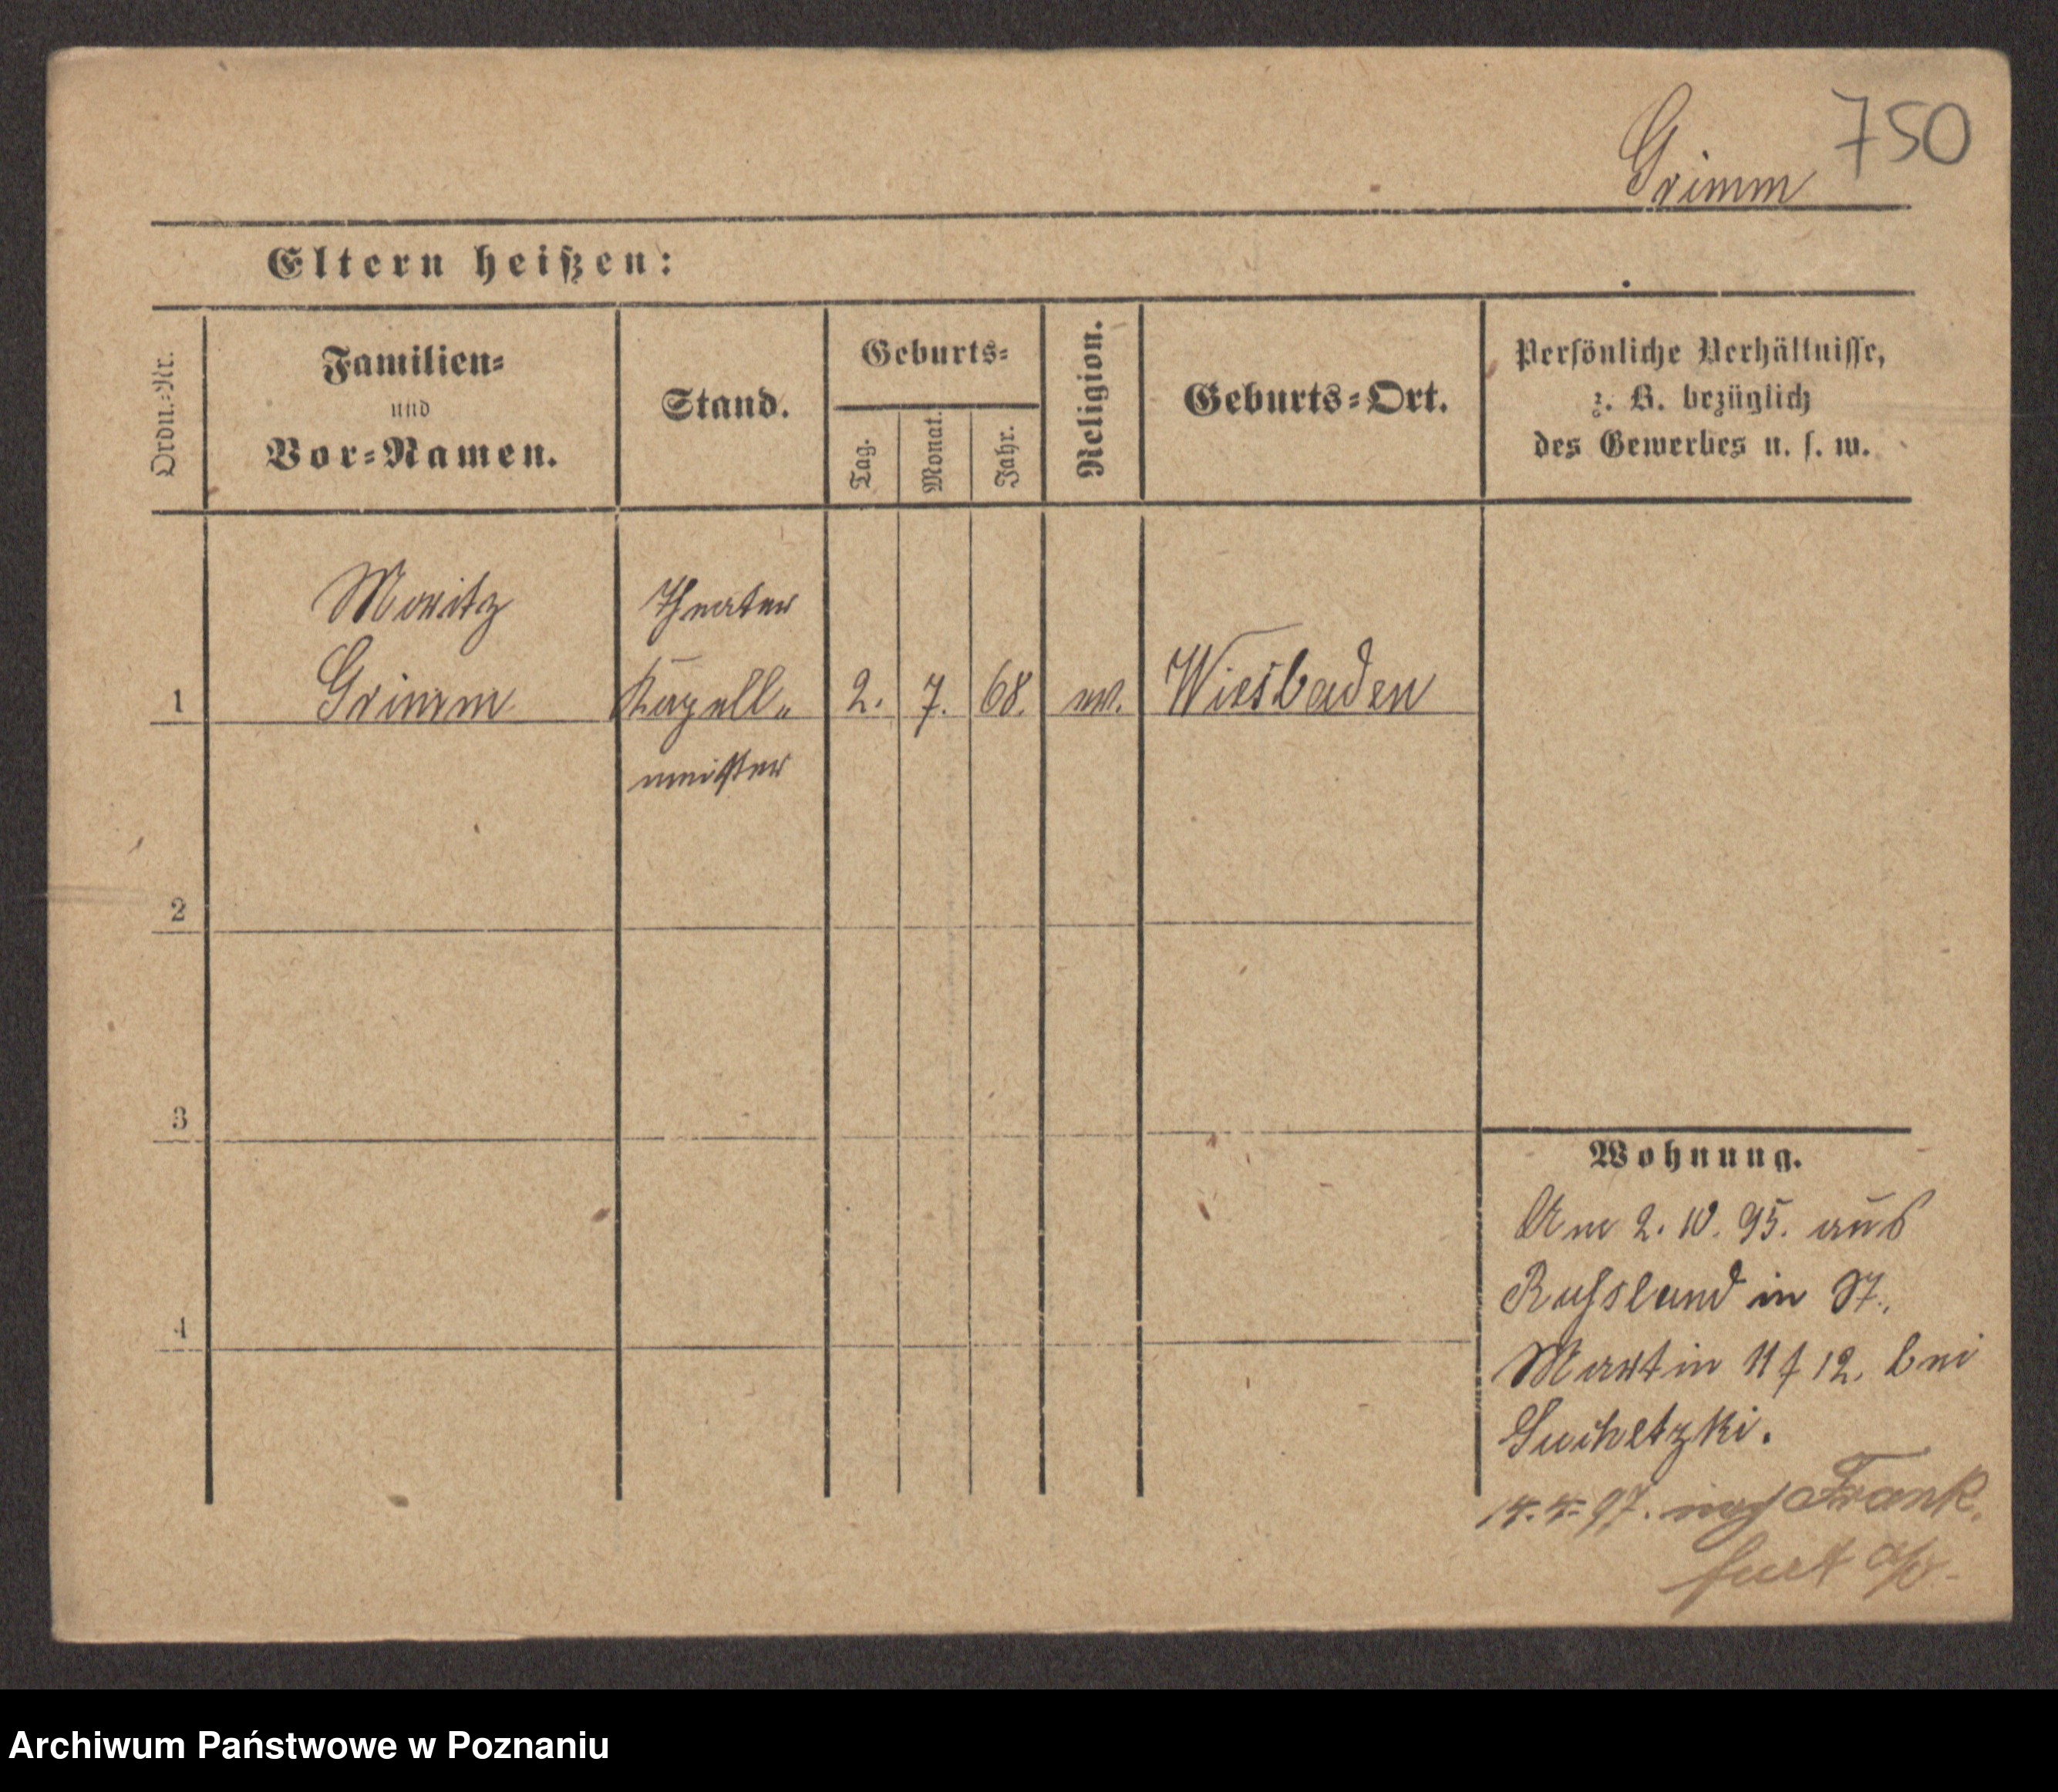 750
Grimm
Eltern heißen:
Ordn.-Nr.
Familien-
und
Vor-Namen.
Stand.
Geburts-
Tag.
Monat.
Jahr.
Religion.
Geburts-Ort.
Persönliche Verhältnisse,
z. B. bezüglich
des Gewerbes u. s. w.
Moritz
Theater
1 Grimm Kapell- 2. 7. 68. ev. Wiesbaden
meister
2
3
4
Wohnung.
Am 2. 10. 95. aus
Russland in St.
Martin 11 12. bei
14. 4. 97. Frank
furt a/o.
Archiwum Państwowe w Poznaniu